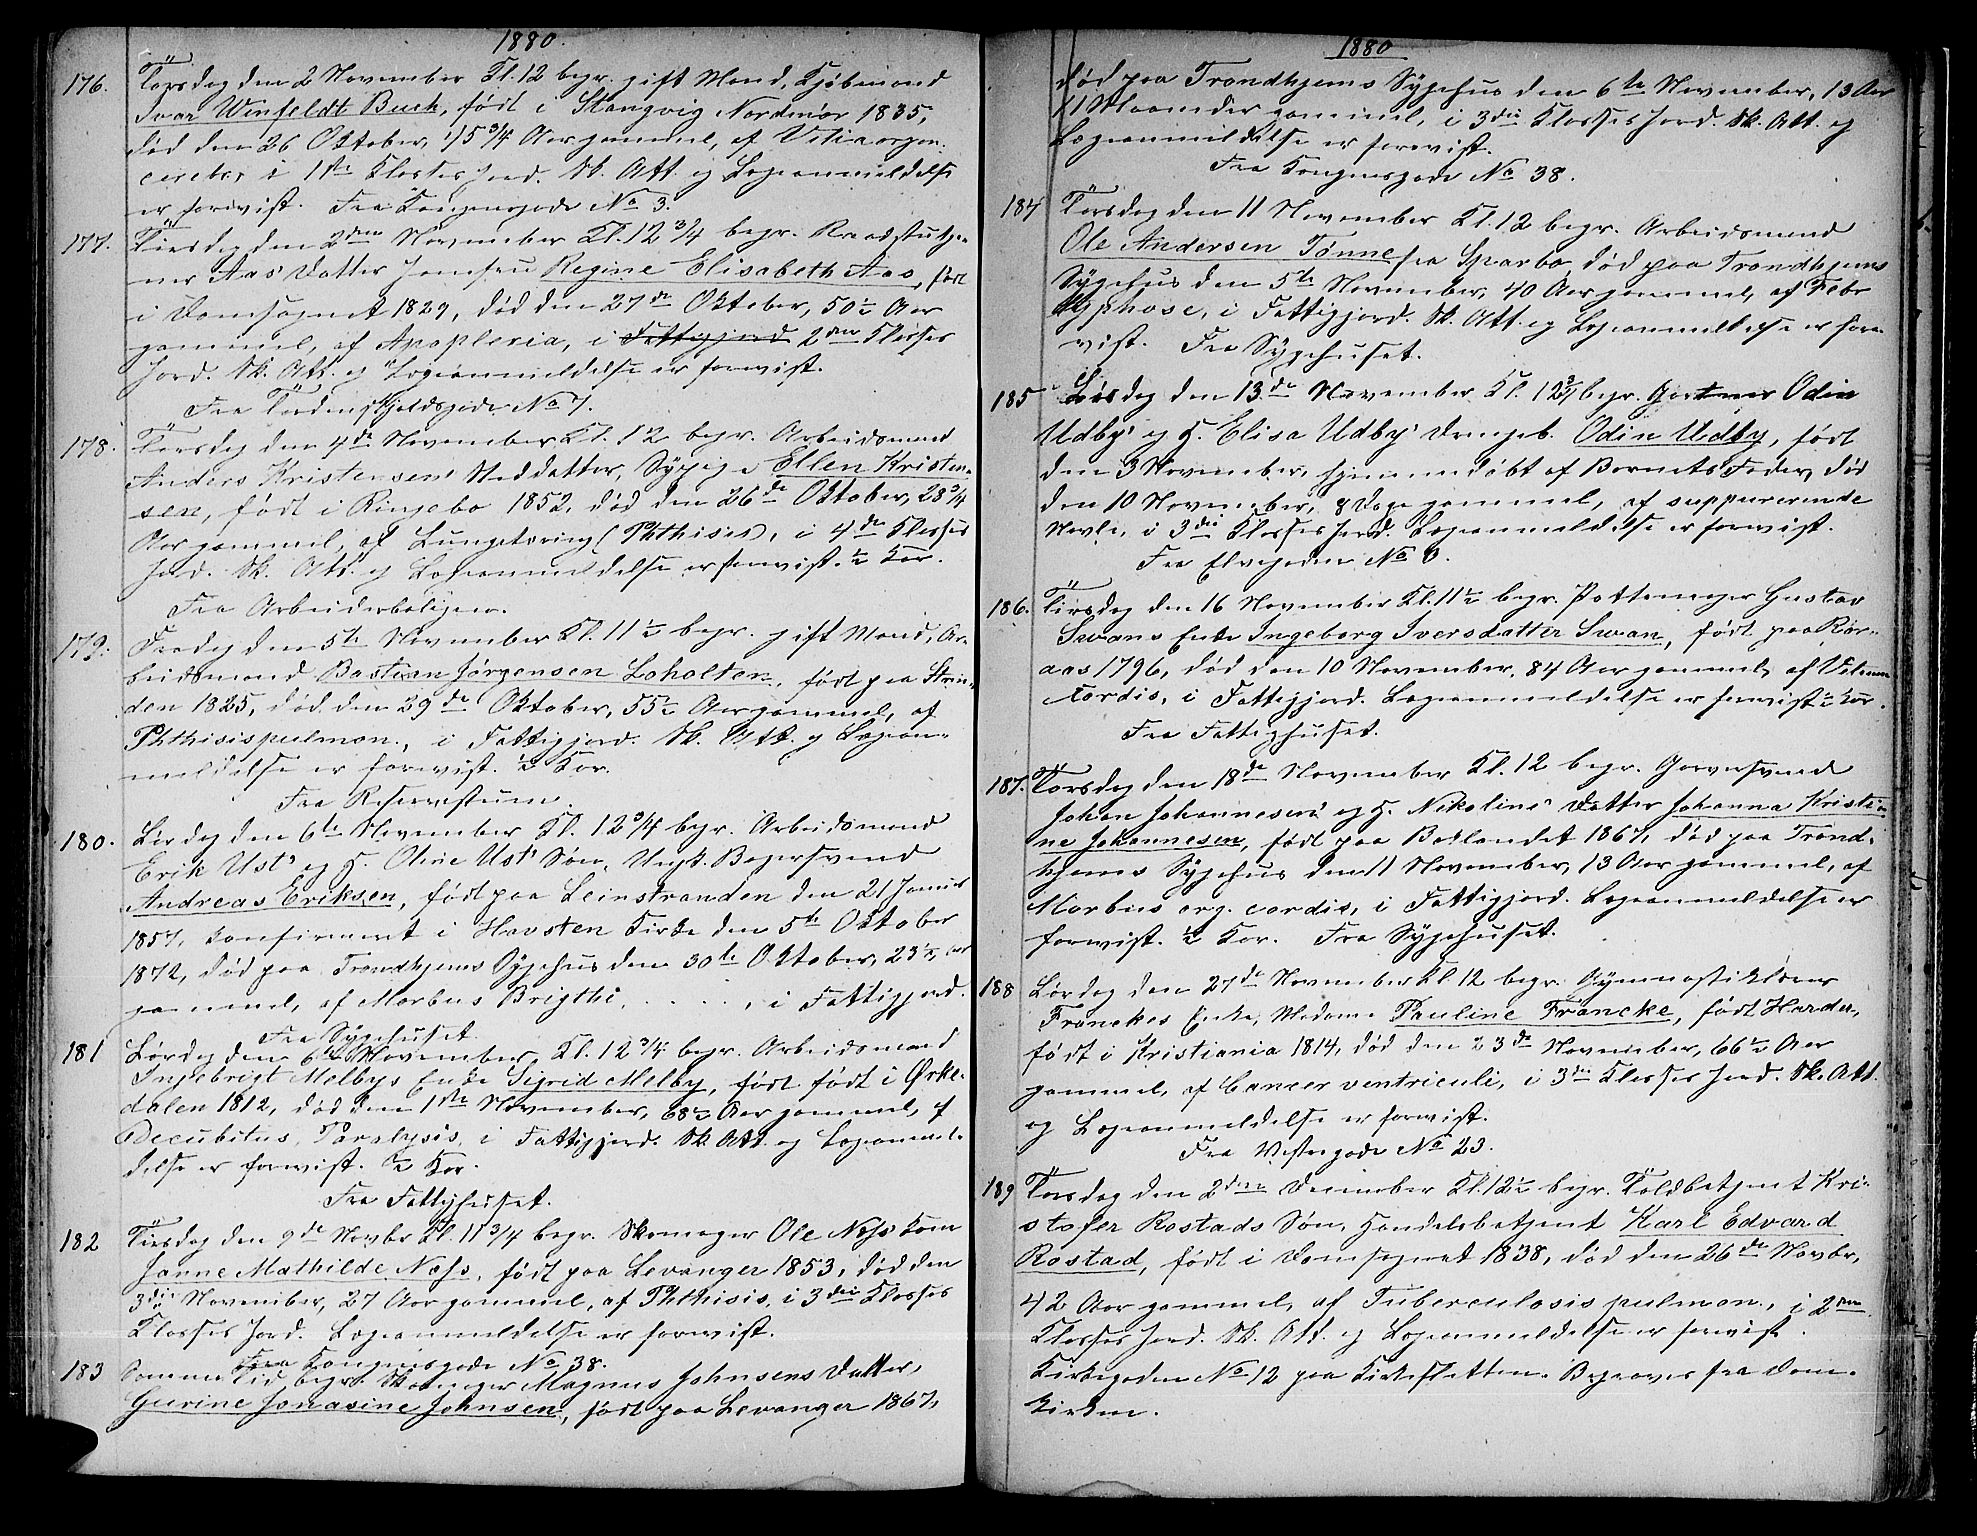 1880.
176. Torsdag den 2 November Kl. 12 begr. gift Mand, Kjøbmand
Ivar Winfeldt Buck, født i Stangvig Nordmør 1835,
død den 26 Oktober, 45 3/4 Aar gammel, af Vitia organ.
cerebri i 1ste Klasses Jord. Sk. Att. og Lægeanmeldelse
er forevist. Fra Kongensgade No 3.
177. Tirsdag den 2den November Kl. 12 3/4 begr. Raadstutje-
ner Aas' Datter Jomfru Regine Elisabeth Aas, født
i Domsognet 1829, død den 27de Oktober, 50 1/2 Aar
gammel, af Apoplexia, i Fattigjord 2den Klasses
Jord. Sk. Att. og Lægeanmeldelse er forevist.
Fra Tordenskjoldsgade No 7.
178. Torsdag den 4de November Kl. 12 begr. Arbeidsmand
Anders Kristensens Steddatter, Sypige Ellen Kristen-
sen, født i Ringebo 1852, død den 26de Oktober, 28 3/4
Aar gammel, af Lungetæring (Phthisis), i 4de Klasses
Jord. Sk. Att. og Lægeanmeldelse er forevist. 1/2 Kor.
Fra Arbeiderboligen.
179. Fredag den 5te November Kl. 11 1/2 begr. gift Mand, Ar-
beidsmand Bastian Jørgensen Loholten, født paa Strin-
den 1825, død den 29de Oktober, 55 1/2 Aar gammel, af
Phthisis pulmon., i Fattigjord. Sk. Att. og Lægean-
meldelse er forevist. 1/2 Kor.
Fra Reservestuen.
180. Lørdag den 6te November Kl. 12 3/4 begr. Arbeidsmand
Erik Ust' og H. Oline Ust' Søn, Ungk. Bagersvend
Andreas Eriksen, født paa Leinstranden den 21 Januar
1857, konfirmeret i Havsten Kirke den 5te Oktober
1872, død paa Trondhjems Sygehus den 30te Oktober, 23 1/2 Aar
gammel, af Morbus Brigthi, . . . . , i Fattigjord.
Fra Sygehuset.
181 Lørdag den 6te November Kl. 12 3/4 begr. Arbeidsmand
Ingebrigt Melbys Enke Sigrid Melby, født født i Ørke-
dalen 1812, død den 1ste November, 68 1/2 Aar gammel, af
Decubitus, Paralysis, i Fattigjord. Sk. Att. og Lægeanmel-
delse er forevist. 1/2 Kor.
Fra Fattighuset.
182 Tirsdag den 9de Novbr Kl. 11 3/4 begr. Skomager Ole Næss' Kone
Janne Mathilde Næss, født paa Levanger 1853, død den
3die November, 27 Aar gammel, af Phthisis, i 3die Klasses
Klasses Jord. Lægeanmeldelse er forevist.
Fra Kongensgade No 38.
183 Samme Tid begr. Skomager Magnus Johnsens Datter,
Gurine Jonasine Johnsen, født paa Levanger 1867,
1880
død paa Trondhjems Sygehus den 6te November, 13 Aar
11 Maaneder gammel, i 3die Klasses Jord. Sk. Att. og
Lægeanmeldelse er forevist.
Fra Kongensgade No 38.
184 Torsdag den 11 November Kl. 12 begr. Arbeidsmand
Ole Andersen Tønne fra Sparbo, død paa Trondhjems
Sygehus den 5te November, 40 Aar gammel, af Febr
typhose, i Fattigjord. Sk. Att. og Lægeanmeldelse er fore-
vist. Fra Sygehuset.
185 Lørdag den 13de November Kl. 12 3/4 begr. Gartner Odin
Udby' og H. Elisa Udby' Drengeb. Odin Udby, født
den 3 November, hjemmedøbt af Barnets Fader, død
den 10 November, 8 Dage gammel, af suppurerende
Navle, i 3die Klasses Jord. Lægeanmeldelse er forevist.
Fra Elvegaden No
186. Tirsdag den 16 November Kl. 11 1/2 begr. Pottemager Gustav
Swans Enke Ingeborg Iversdatter Swan, født paa Rør-
aas 1796, død den 10 November, 84 Aar gammel, af Vitium
cordis, i Fattigjord. Lægeanmeldelse er forevist 1/2 Kor.
Fra Fattighuset.
187. Torsdag den 18de November Kl. 12 begr. Garversvend
Johan Johannesens' og H. Nikolines' Datter Johanna Kristi-
ne Johannesen, født paa Baklandet 1867, død paa Trond-
hjems Sygehus den 11 November, 13 Aar gammel, af
Morbus org. cordis, i Fattigjord. Lægeanmeldelse er
forevist. 1/2 Kor. Fra Sygehuset.
188 Lørdag den 27de November Kl. 12 begr. Gymnastiklærer
Franckes Enke, Madame Pauline Francke, født Harder,
født i Kristiania 1814, død den 23de November, 66 1/2 Aar
gammel, af Cancer ventriculi, i 3die Klasses Jord. Sk. Att.
og Lægeanmeldelse er forevist.
Fra Vestregade No 23.
189 Torsdag den 2den December Kl. 12 1/2 begr. Toldbetjent Kri-
stofer Rostads Søn, Handelsbetjent Karl Edvard
Rostad, født i Domsognet 1838, død den 26de Novbr,
42 Aar gammel, af Tuberculosis pulmon., i 2den
Klasses Jord. Sk. Att. og Lægeanmeldelse er forevist.
Kirkegaden No 12 paa Kirkesletten. Begraves fra Dom-
kirken.